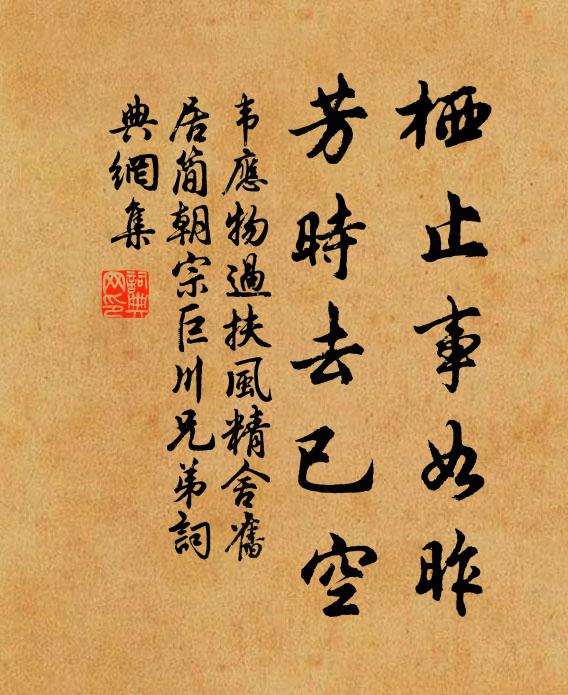 栖止事如昨
芳時去已空
韦應物過扶風精舍舊
居简朝宗巨川兄弟詞
典網集
詞典
网印